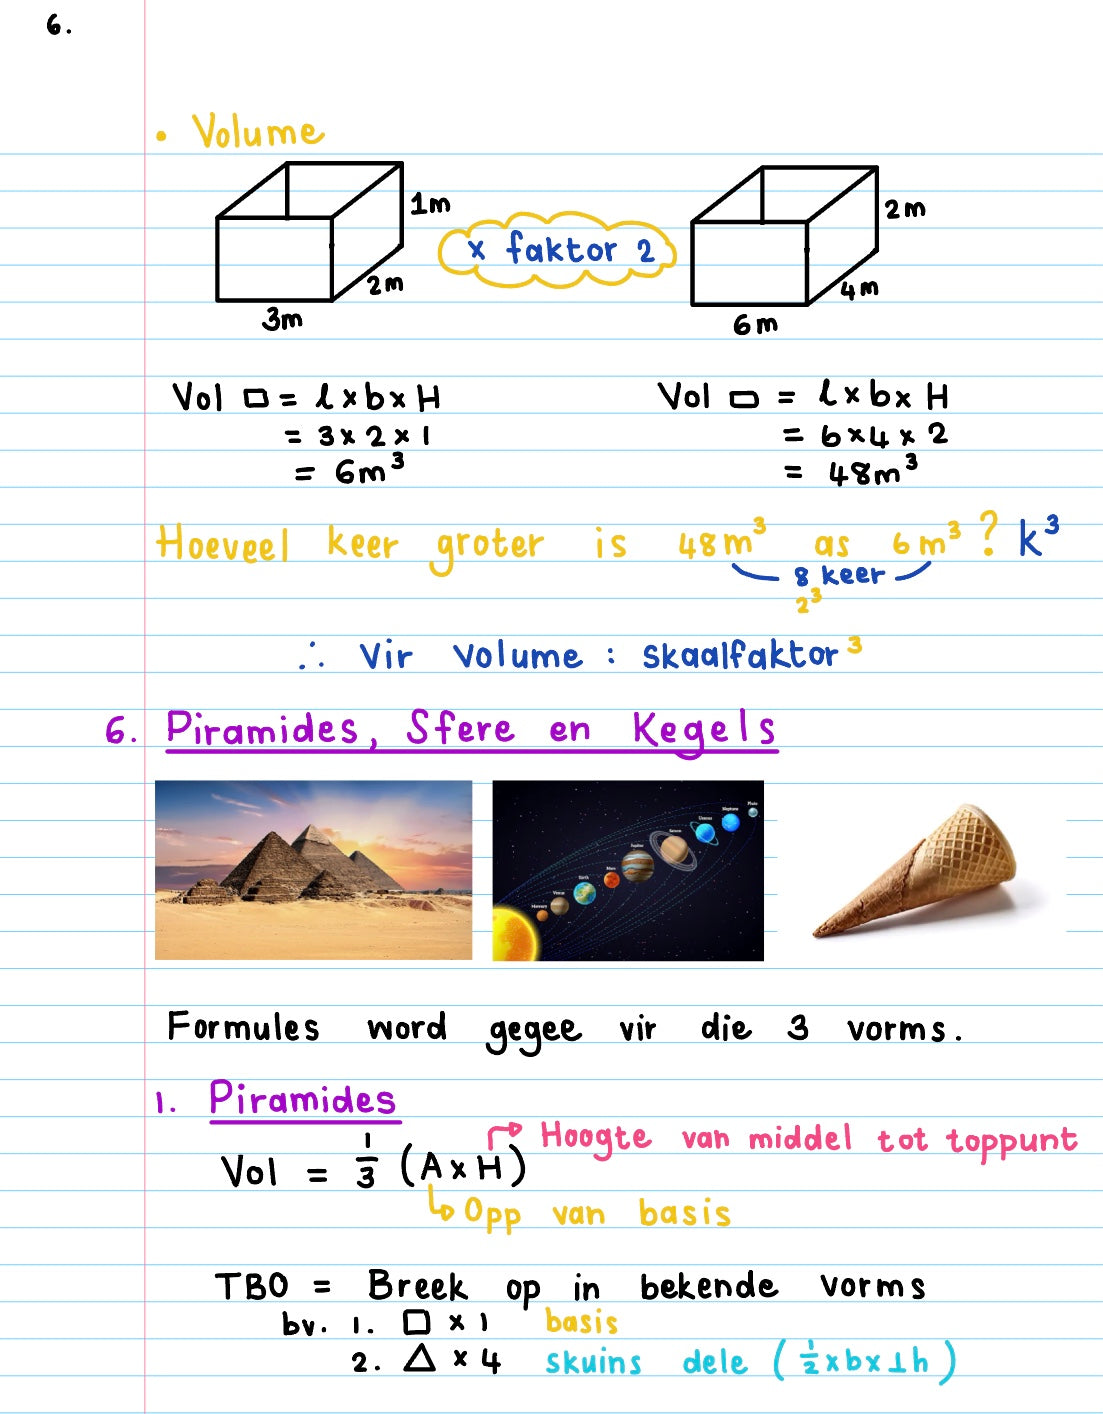 6.
• Volume
1m
2m
3m
x faktor 2
2m
4m
6m
Vol ▭ = l x b x H
= 3 x 2 x 1
= 6m³
Vol ▭ = l x b x H
= 6 x 4 x 2
= 48m³
Hoeveel keer groter is 48m³ as 6m³? k³
8 keer
2³
∴ Vir Volume : skaalfaktor³
6. Piramides, Sfere en Kegels
Mercury
Venus
Earth
Mars
Jupiter
Saturn
Uranus
Neptune
Pluto
Formules word gegee vir die 3 vorms.
1. Piramides
Hoogte van middel tot toppunt
Vol = 1/3 (A x H)
Opp van basis
TBO = Breek op in bekende vorms
bv. 1. □ x 1 basis
2. △ x 4 skuins dele (½ x b x ⊥h)